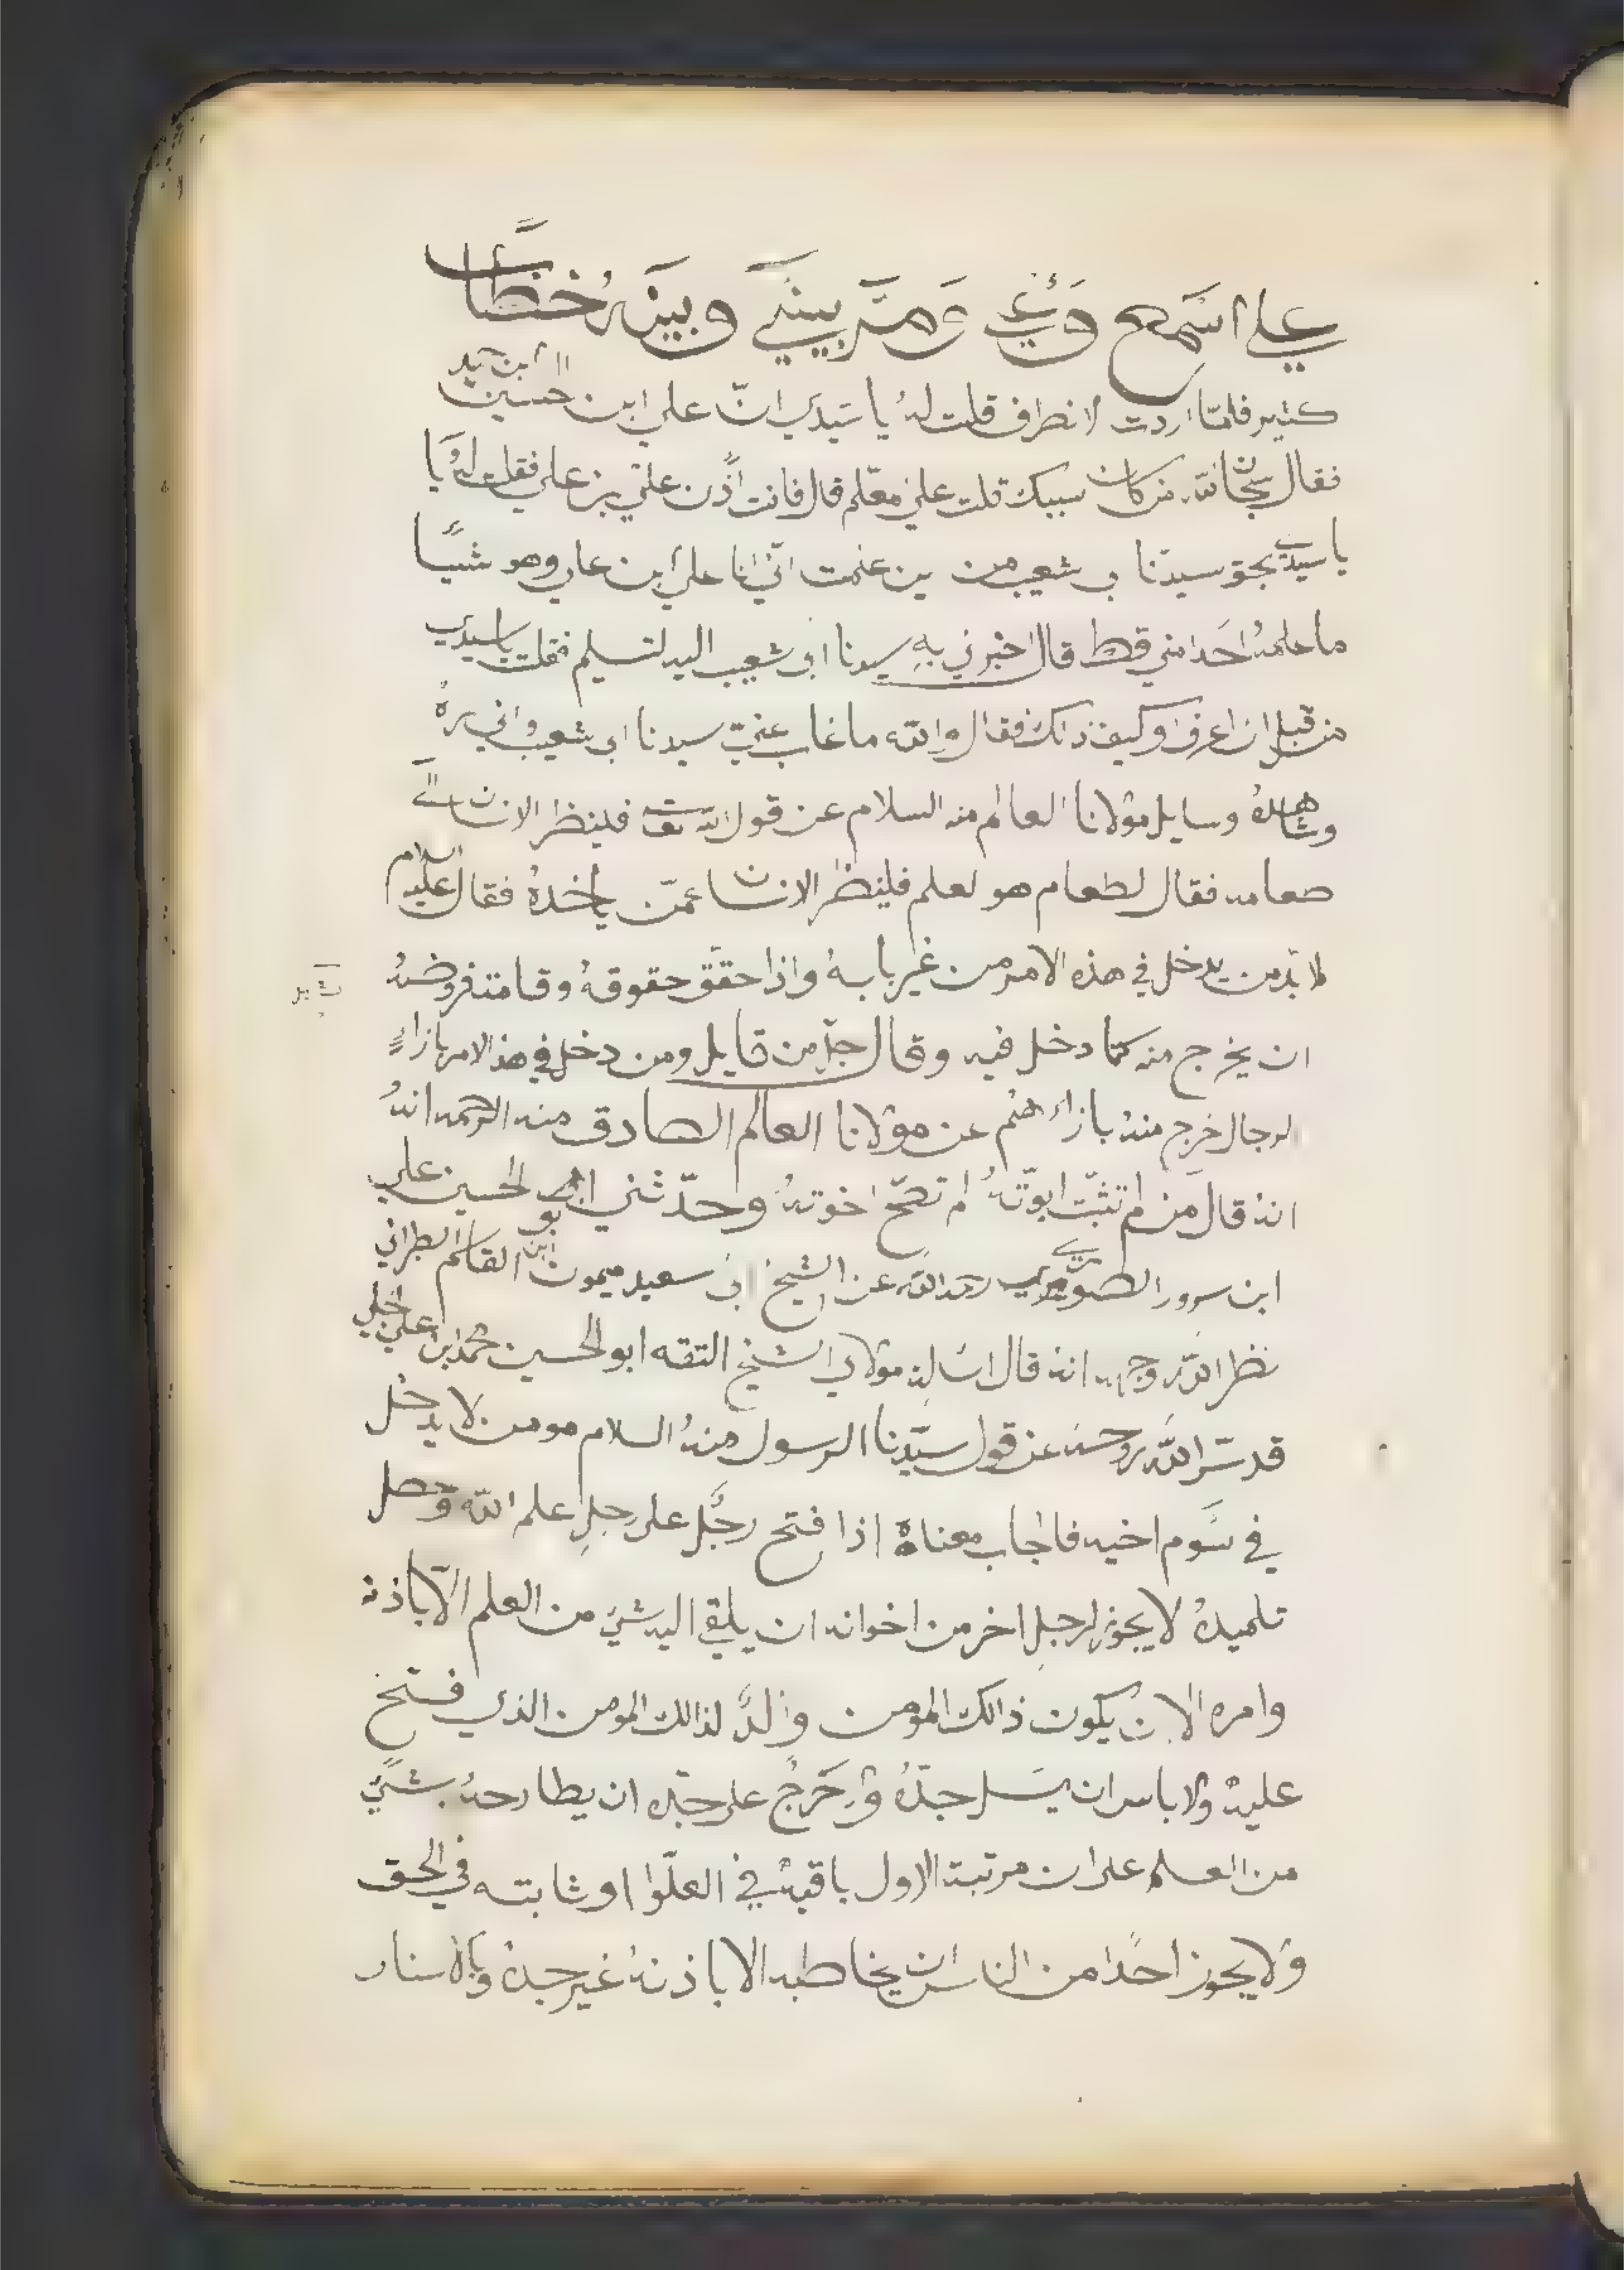 علي اسمع وَعِي وَمَرَّ بيني وبينهُ خطابٌ
كثير فلمّا اردت لانصراف قلت لهُ يا سيّدي انّ علي ابن حسين
فقال سبحان الله من كان سببك قلت علي معلّم قال فانت اذن علي بن علي فقلت لهُ يا
يا سيدي بحق سيدنا ابي شعيب من اين علمت انّي انا علي ابن علي وهو شيًا
ما علمهُ احَدا مني قط قال اخبرني بهِ سيدنا ابي شعيب اليه لتسليم فقلت يا سيدي
من قبل ان اعرف وكيف ذالك فقال والله ما غاب عنّي سيدنا ابي شعيب واني اراهُ
وشاهدهُ وسايل مولانا العالم منه السلام عن قول الله تعا فلينظر الانسان الَى
طعامه فقال لطعام هو لعلم فلينظر الانسان عمّن ياخدهُ فقال عليه السلام
لا بدّ من يدخل في هذه الامر من غير بابهُ واذا حقق حقوقهُ وقامت فروضهُ
ان يخرج منه كما دخل فيه وقال جلّ من قايل ومن دخل في هذ الامر بازاءِ
لرجال خرج منهُ بازاءهم عن مولانا العالم الصادق منه الرحمه انهُ
انهُ قال من لم تثبّت ابوّتهُ لم تصّح اخوتهُ وحدّثني ابو الحسين علي
ابن سرور الصوري رحمه الله عن الشيخ ابي سعيد ميمون ابن القاسم الطبراني
نظر الله وجهه انهُ قال اسالهُ مولاي الشيخ الثقه ابو الحسين محمد ابن علي الجلي
قدسّ الله روحهُ عن قول سيّدنا الرسول منهُ السلام مومن لا يدخل
في سَوم اخيه فاجاب معناهُ اذا فتح رجُل على رجلِ علم الله وحصل
تلميدهُ لا يجوز لرجلِ اخر من اخوانه ان يلقي اليه شيً من العلم الّا باذنه
وامره الا ان يكون ذالك المومن والدُ لذالك المومن الذي فتح
عليهْ ولا باس ان يسَل جدّهُ ولا حَرجُ على جدّه ان يطارحهُ بشيً
من العلم على ان مرتبة الاول باقيهْ في العلّوا او ثابته في الحق
ولا يجوز احدًا من الناس ان يخاطبه الا باذنهُ غير جدهُ وبالاسناد